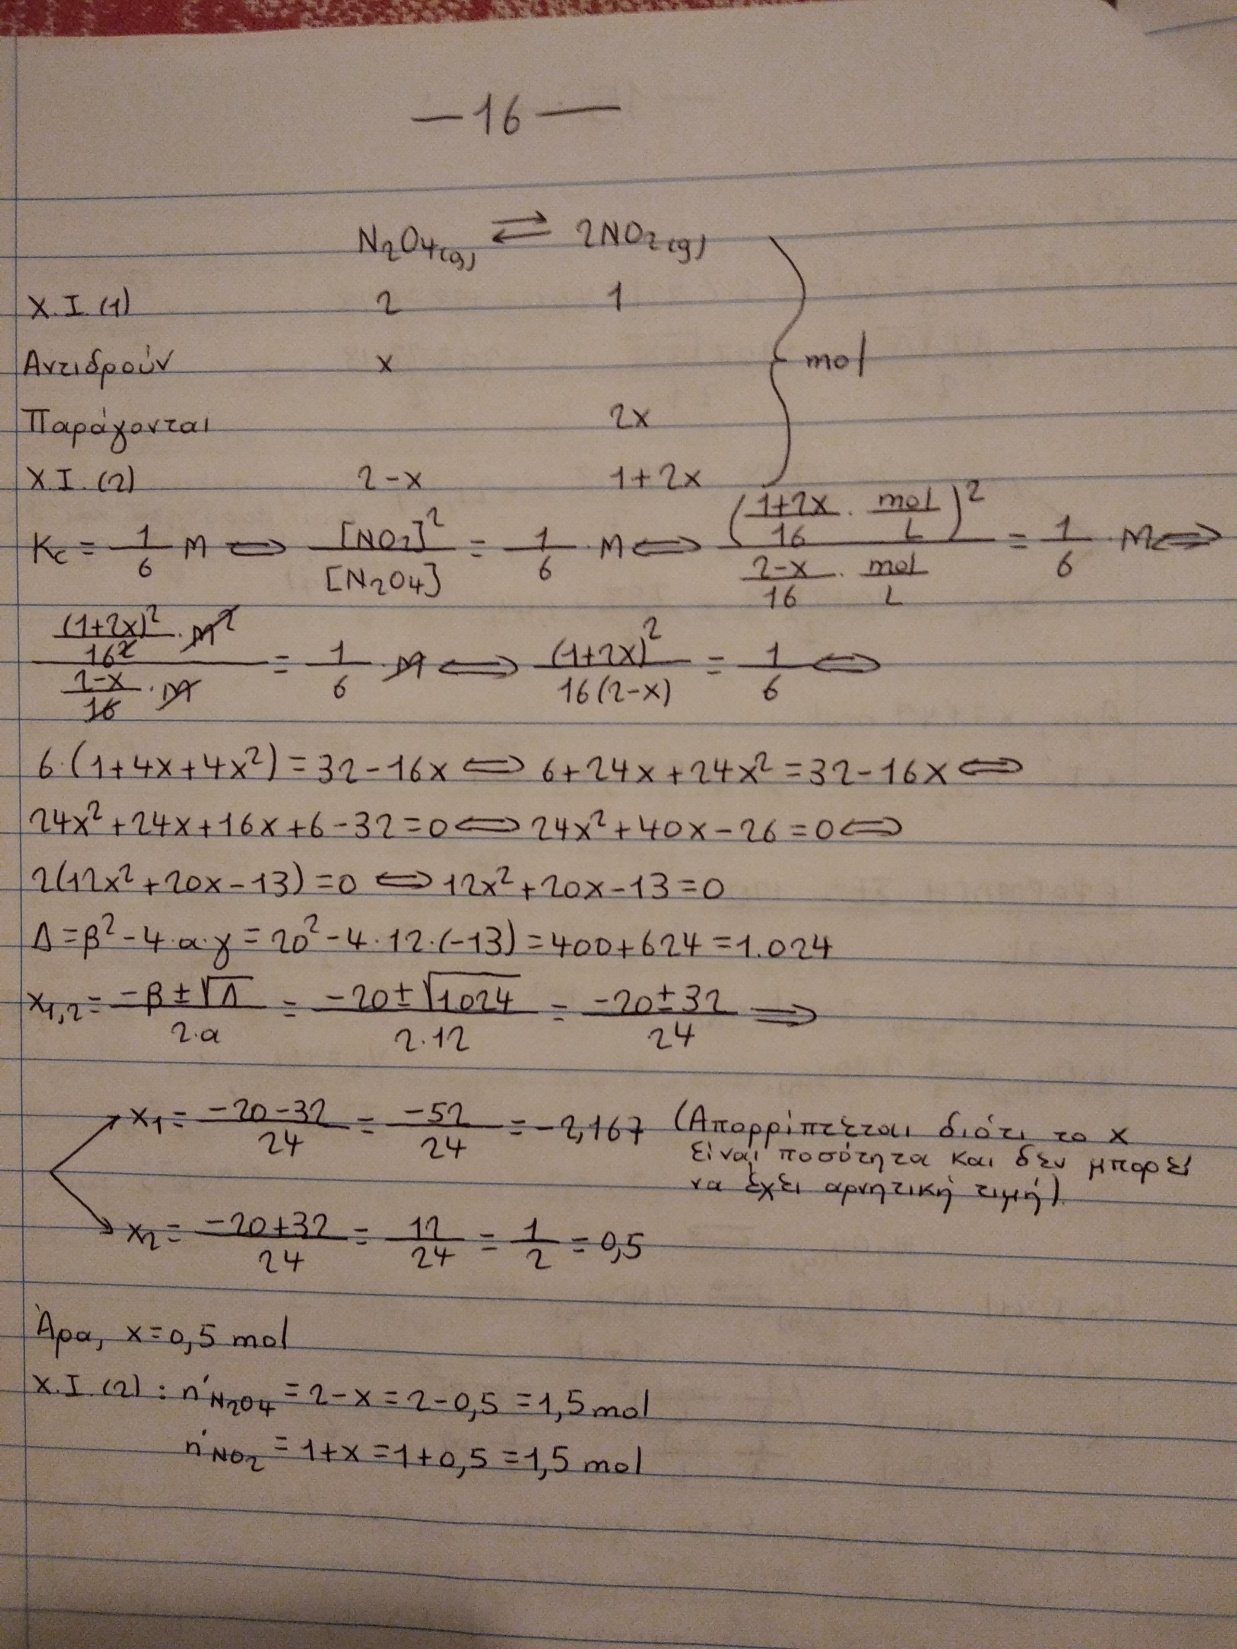 —16—
N₂O₄(g) ⇌ 2NO₂(g)
Χ.Ι.(1) 2 1
Αντιδρούν x mol
Παράγονται 2x
Χ.Ι.(2) 2-x 1+2x
Kc = 1/6 M ⟺ [NO₂]²/[N₂O₄] = 1/6 · M ⟺ ((1+2x)/16 · mol/L)² / ((2-x)/16 · mol/L) = 1/6 · M ⟺
((1+2x)²/16² · M²) / ((2-x)/16 · M) = 1/6 · M ⟺ (1+2x)²/16(2-x) = 1/6 ⟺
6·(1+4x+4x²)=32-16x ⟺ 6+24x+24x²=32-16x ⟺
24x²+24x+16x+6-32=0 ⟺ 24x²+40x-26=0 ⟺
2(12x²+20x-13)=0 ⟺ 12x²+20x-13=0
Δ=β²-4·α·γ=20²-4·12·(-13)=400+624=1.024
x₁,₂ = (-β±√Δ)/(2·α) = (-20±√1024)/(2·12) = (-20±32)/24 ⟹
x₁ = (-20-32)/24 = -52/24 = -2,167 (Απορρίπτεται διότι το x
είναι ποσότητα και δεν μπορεί
να έχει αρνητική τιμή).
x₂ = (-20+32)/24 = 12/24 = 1/2 = 0,5
Άρα, x=0,5 mol
Χ.Ι.(2): n'N₂O₄ = 2-x = 2-0,5 = 1,5 mol
n'NO₂ = 1+x = 1+0,5 = 1,5 mol